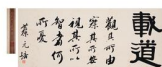 載道
觀其所由
察其所
視其所以
智者何
所憂
蔡元培